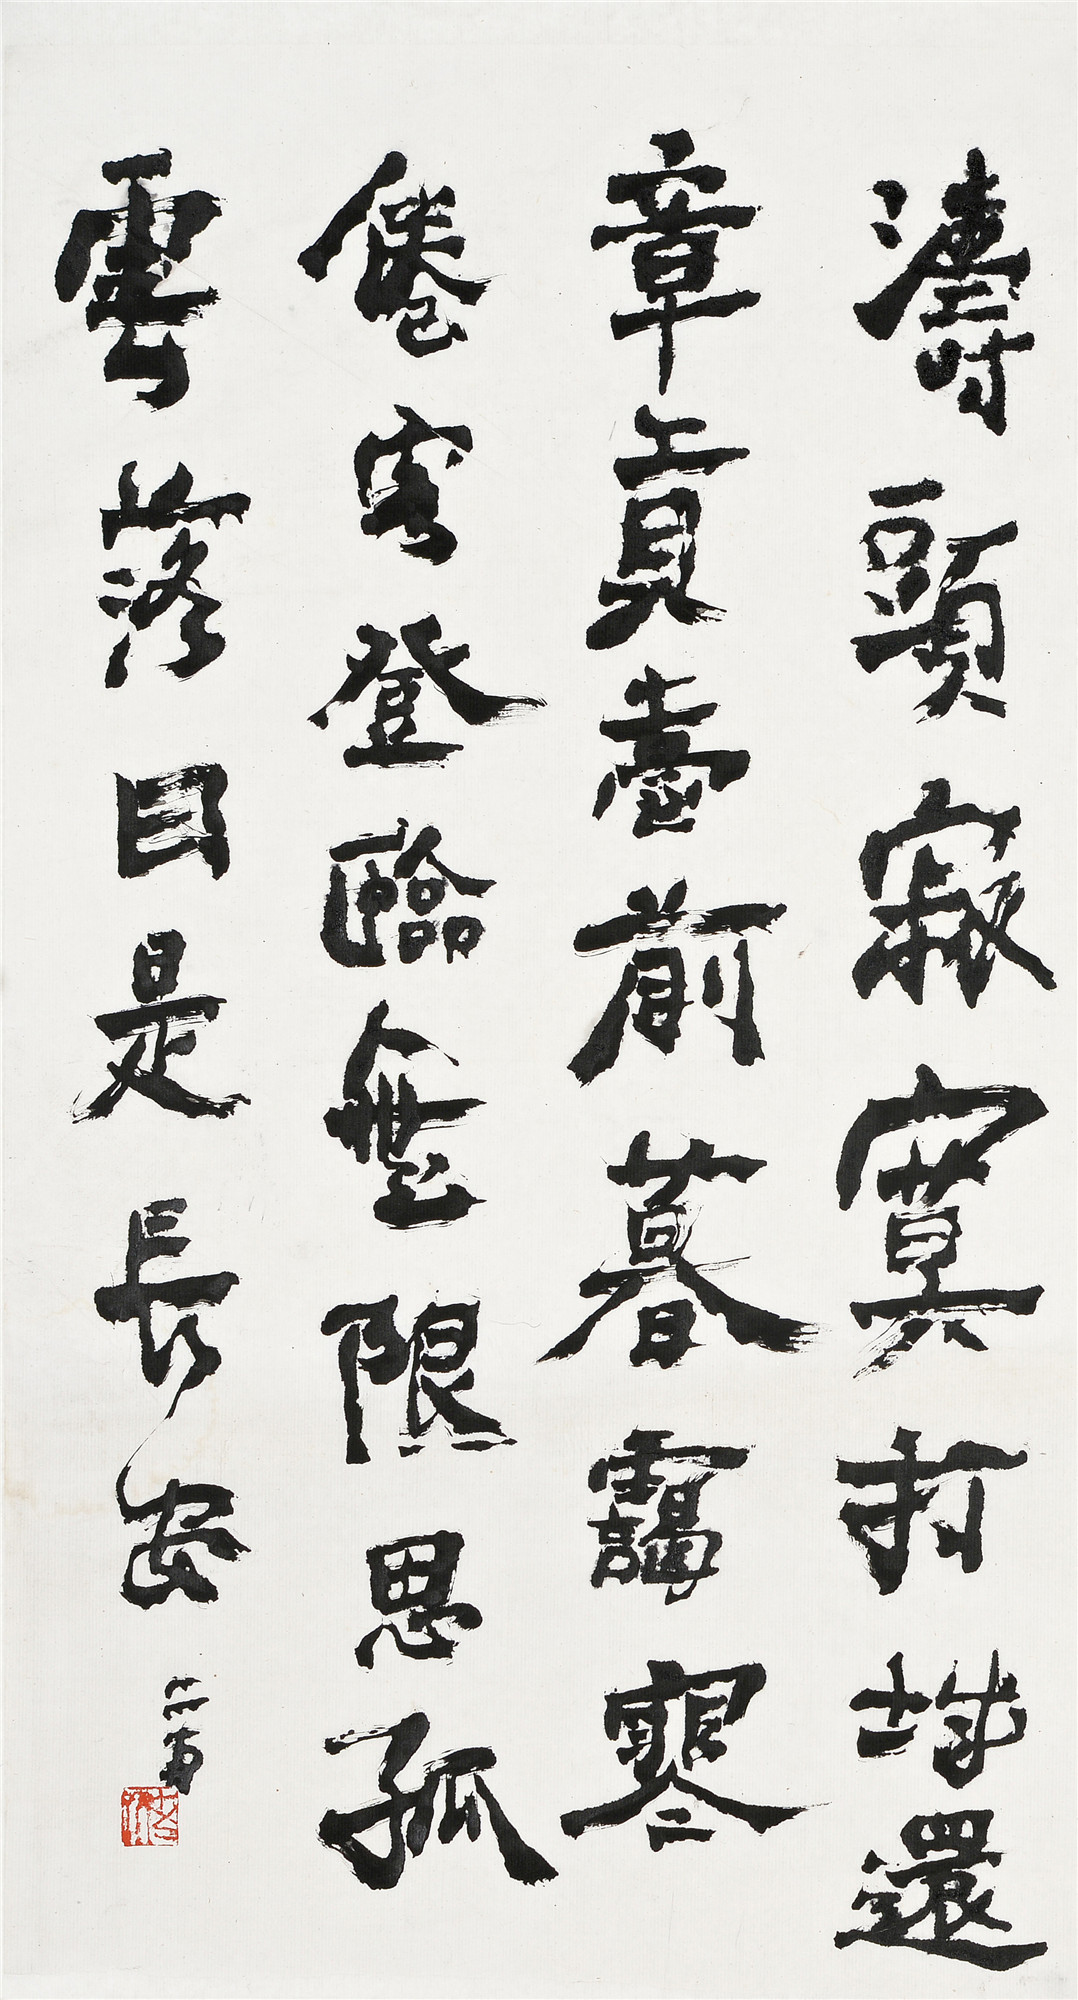 濤頭寂寞打城還
章貢臺前暮靄寒
倦客登臨無限思孤
雲落日是長安